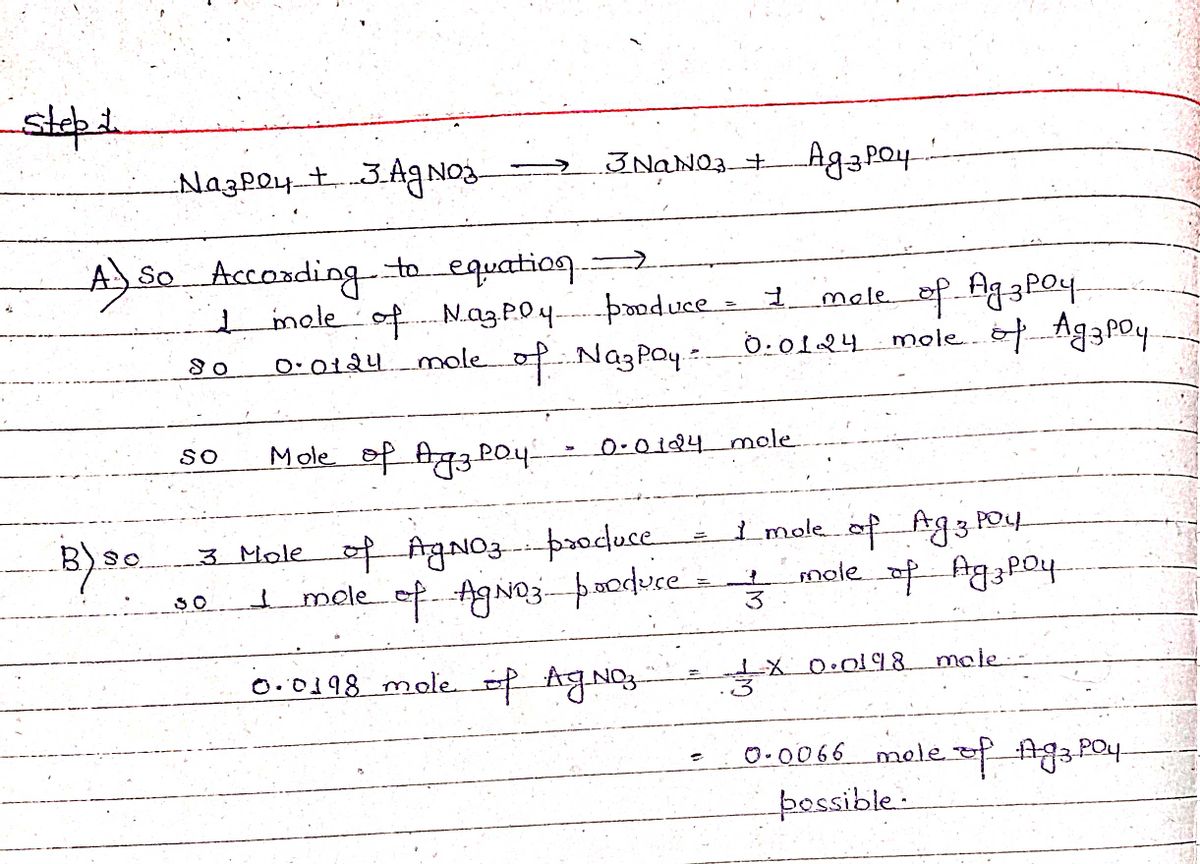 Step 1.
Na3PO4 + 3AgNO3 → 3NaNO3 + Ag3PO4
A) so According to equation →
1 mole of Na3PO4 produce = 1 mole of Ag3PO4
so 0.0124 mole of Na3PO4 = 0.0124 mole of Ag3PO4
so Mole of Ag3PO4 = 0.0124 mole
B) so 3 Mole of AgNO3 produce = 1 mole of Ag3PO4
so 1 mole of AgNO3 produce = 1/3 mole of Ag3PO4
0.0198 mole of AgNO3 = 1/3 X 0.0198 mole
= 0.0066 mole of Ag3PO4
possible.